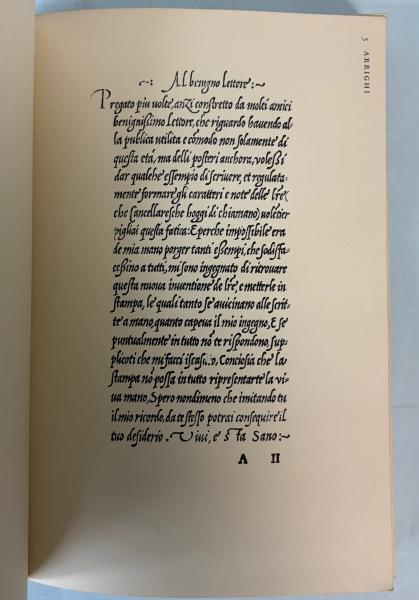 5 ARRIGHI
~: Al benigno lettore :~
Pregato piu volte, anzi constretto da molti amici
benignissimo Lettore, che riguardo havendo al-
la publica utilita e cōmodo non solamente di
questa età, ma delli posteri anchora, volessi
dar qualche essempio di scrivere, et regulata-
mente formare gli caratteri e note delle lr̄e
che Cancellaresche hoggi di chiamano) volētier
pigliai questa fatica: E perche impossibile era
de mia mano porger tanti essempi, che sodisfa-
cessino a tutti, mi sono ingegnato di ritrouare
questa nuova inventione de lr̄e, e metterle in
stampa, le quali tanto se avicinano alle scrit-
te a mano, quanto capeva il mio ingegno, E se
puntualmente in tutto nō te rispondono, sup-
plicoti che mi facci iscusato, Conciosia che la
stampa nō possa in tutto ripresentarte la vi-
va mano, Spero nondimeno che imitando tu
il mio ricordo, da te stesso potrai consequire il
tuo desiderio. Vivi, e sta Sano :~
A II